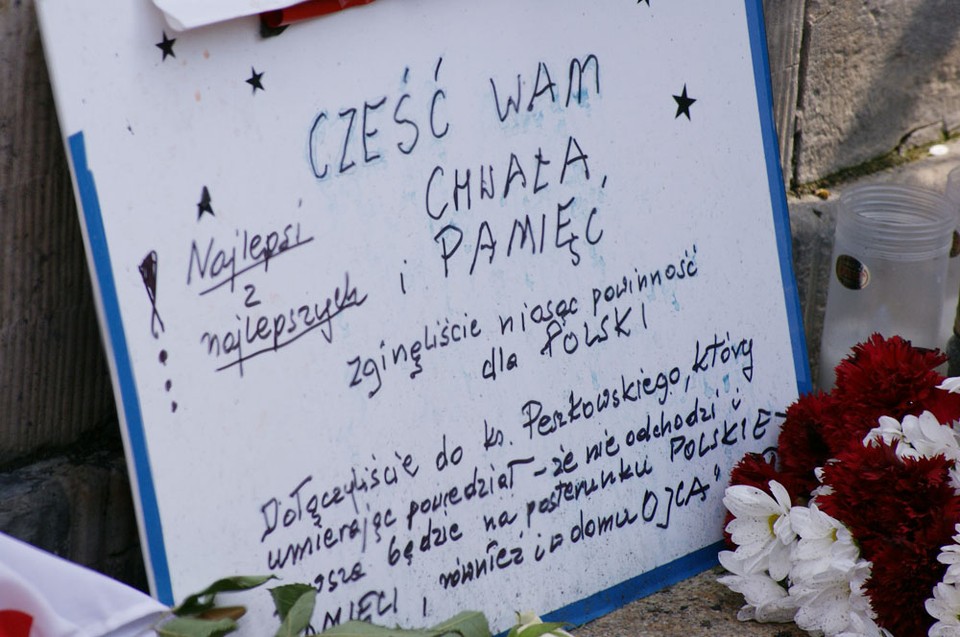 CZEŚĆ WAM
CHWAŁA,
i PAMIĘĆ
Najlepsi
z
najlepszych
!
zginęliście niosąc powinność
dla POLSKI
Dołączyliście do ks. Peszkowskiego, który
umierając powiedział - że nie odchodzi i
będzie na posterunku POLSKIEJ
PAMIĘCI, również i w domu OJCA"